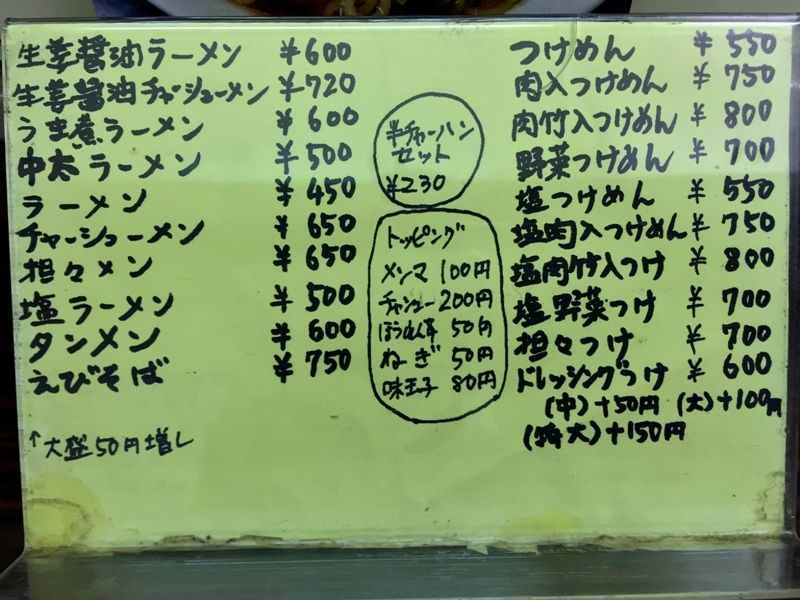 生姜醤油ラーメン ¥600
生姜醤油チャーシューメン ¥720
うま煮ラーメン ¥600
中太ラーメン ¥500
ラーメン ¥450
チャーシューメン ¥650
担々メン ¥650
塩ラーメン ¥500
タンメン ¥600
えびそば ¥750
↑大盛50円増し
半チャーハン
セット
¥230
トッピング
メンマ 100円
チャシュー 200円
ほうれん草 50円
ねぎ 50円
味玉子 80円
つけめん ¥550
肉入つけめん ¥750
肉竹入つけめん ¥800
野菜つけめん ¥700
塩つけめん ¥550
塩肉入つけめん ¥750
塩肉竹入つけ ¥800
塩野菜つけ ¥700
担々つけ ¥700
ドレッシングつけ ¥600
(中)+50円 (大)+100円
(特大)+150円